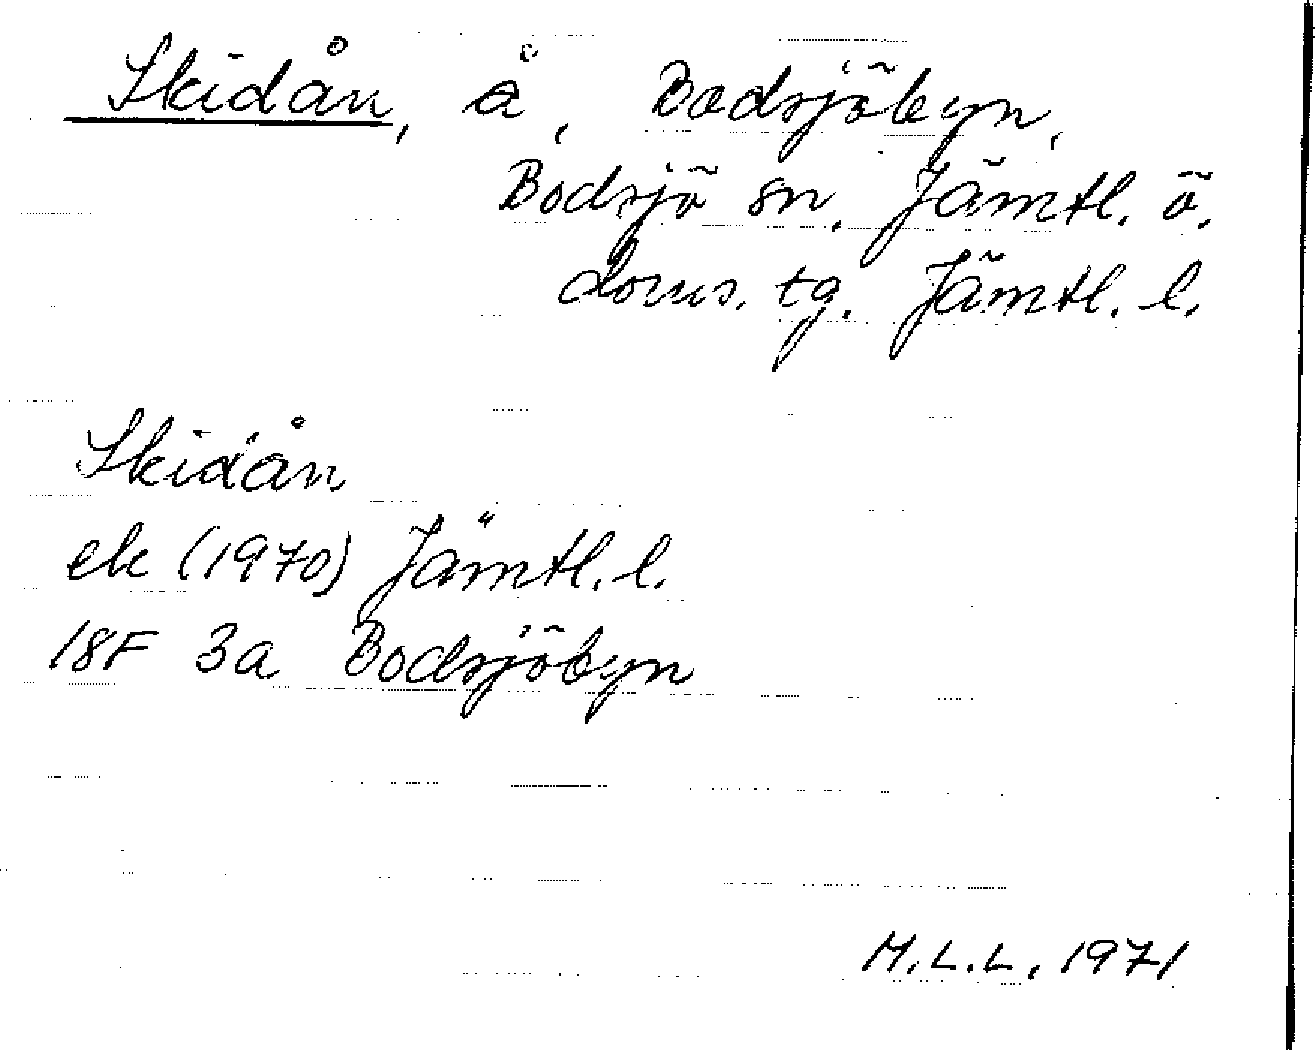 Skidån, å, Bodsjöbyn,
Bodsjö sn. Jämtl. ö.
doms. tg. Jämtl. l.
Skidån
ek (1970) Jämtl. l.
18F 3a Bodsjöbyn
M.L.L. 1971